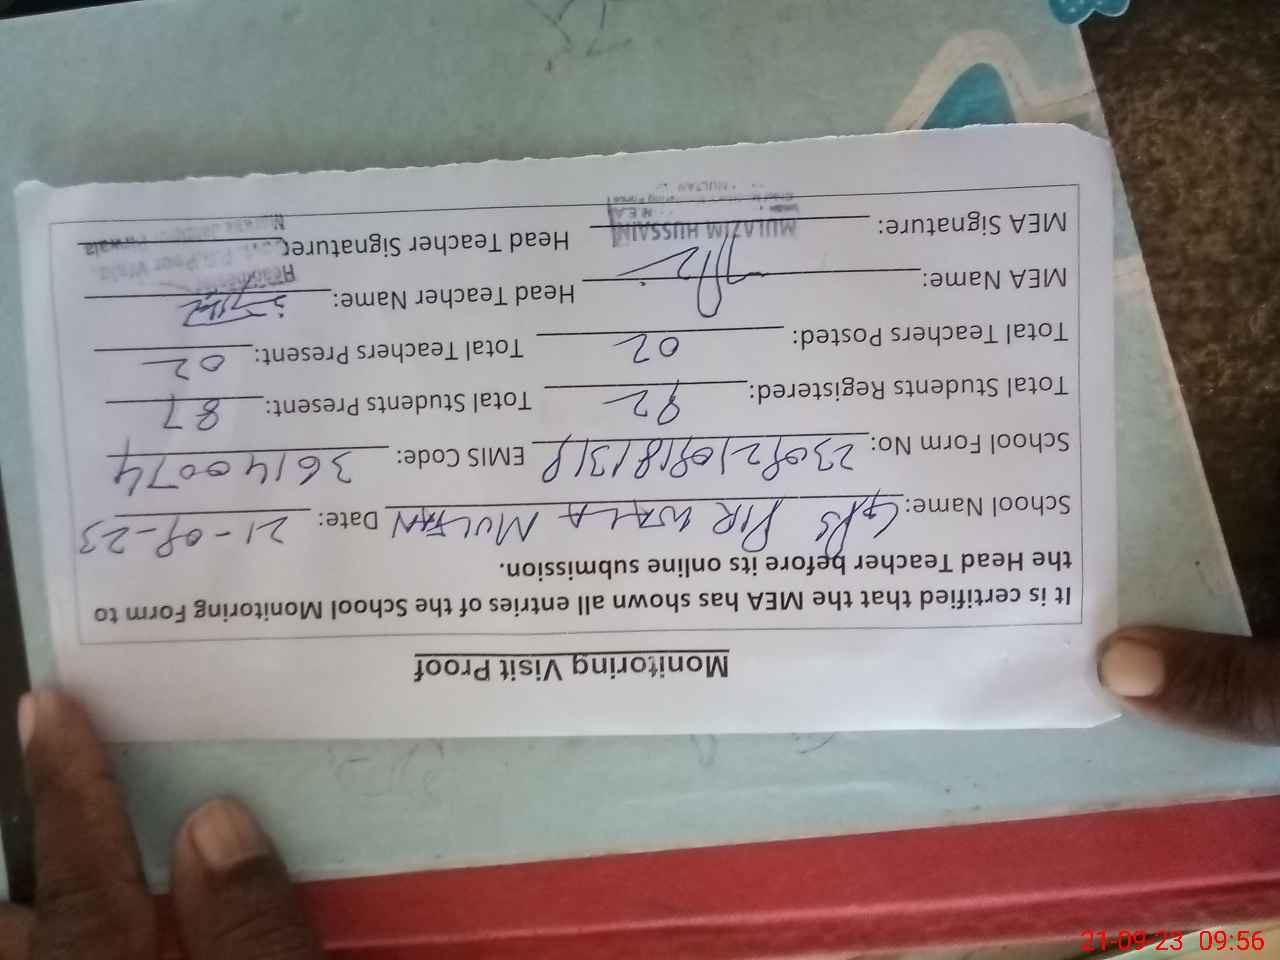 Monitoring Visit Proof
It is certified that the MEA has shown all entries of the School Monitoring Form to
the Head Teacher before its online submission.
School Name: GPS PIR WALA MULTAN Date: 21-09-23
School Form No: EMIS Code: 36140074
Total Students Registered: 92 Total Students Present: 87
Total Teachers Posted: 02 Total Teachers Present: 02
MEA Name: Head Teacher Name:
MEA Signature: Head Teacher Signature:
MULAZIM HUSSAIN
M E A
MULTAN
21-09-23 09:56